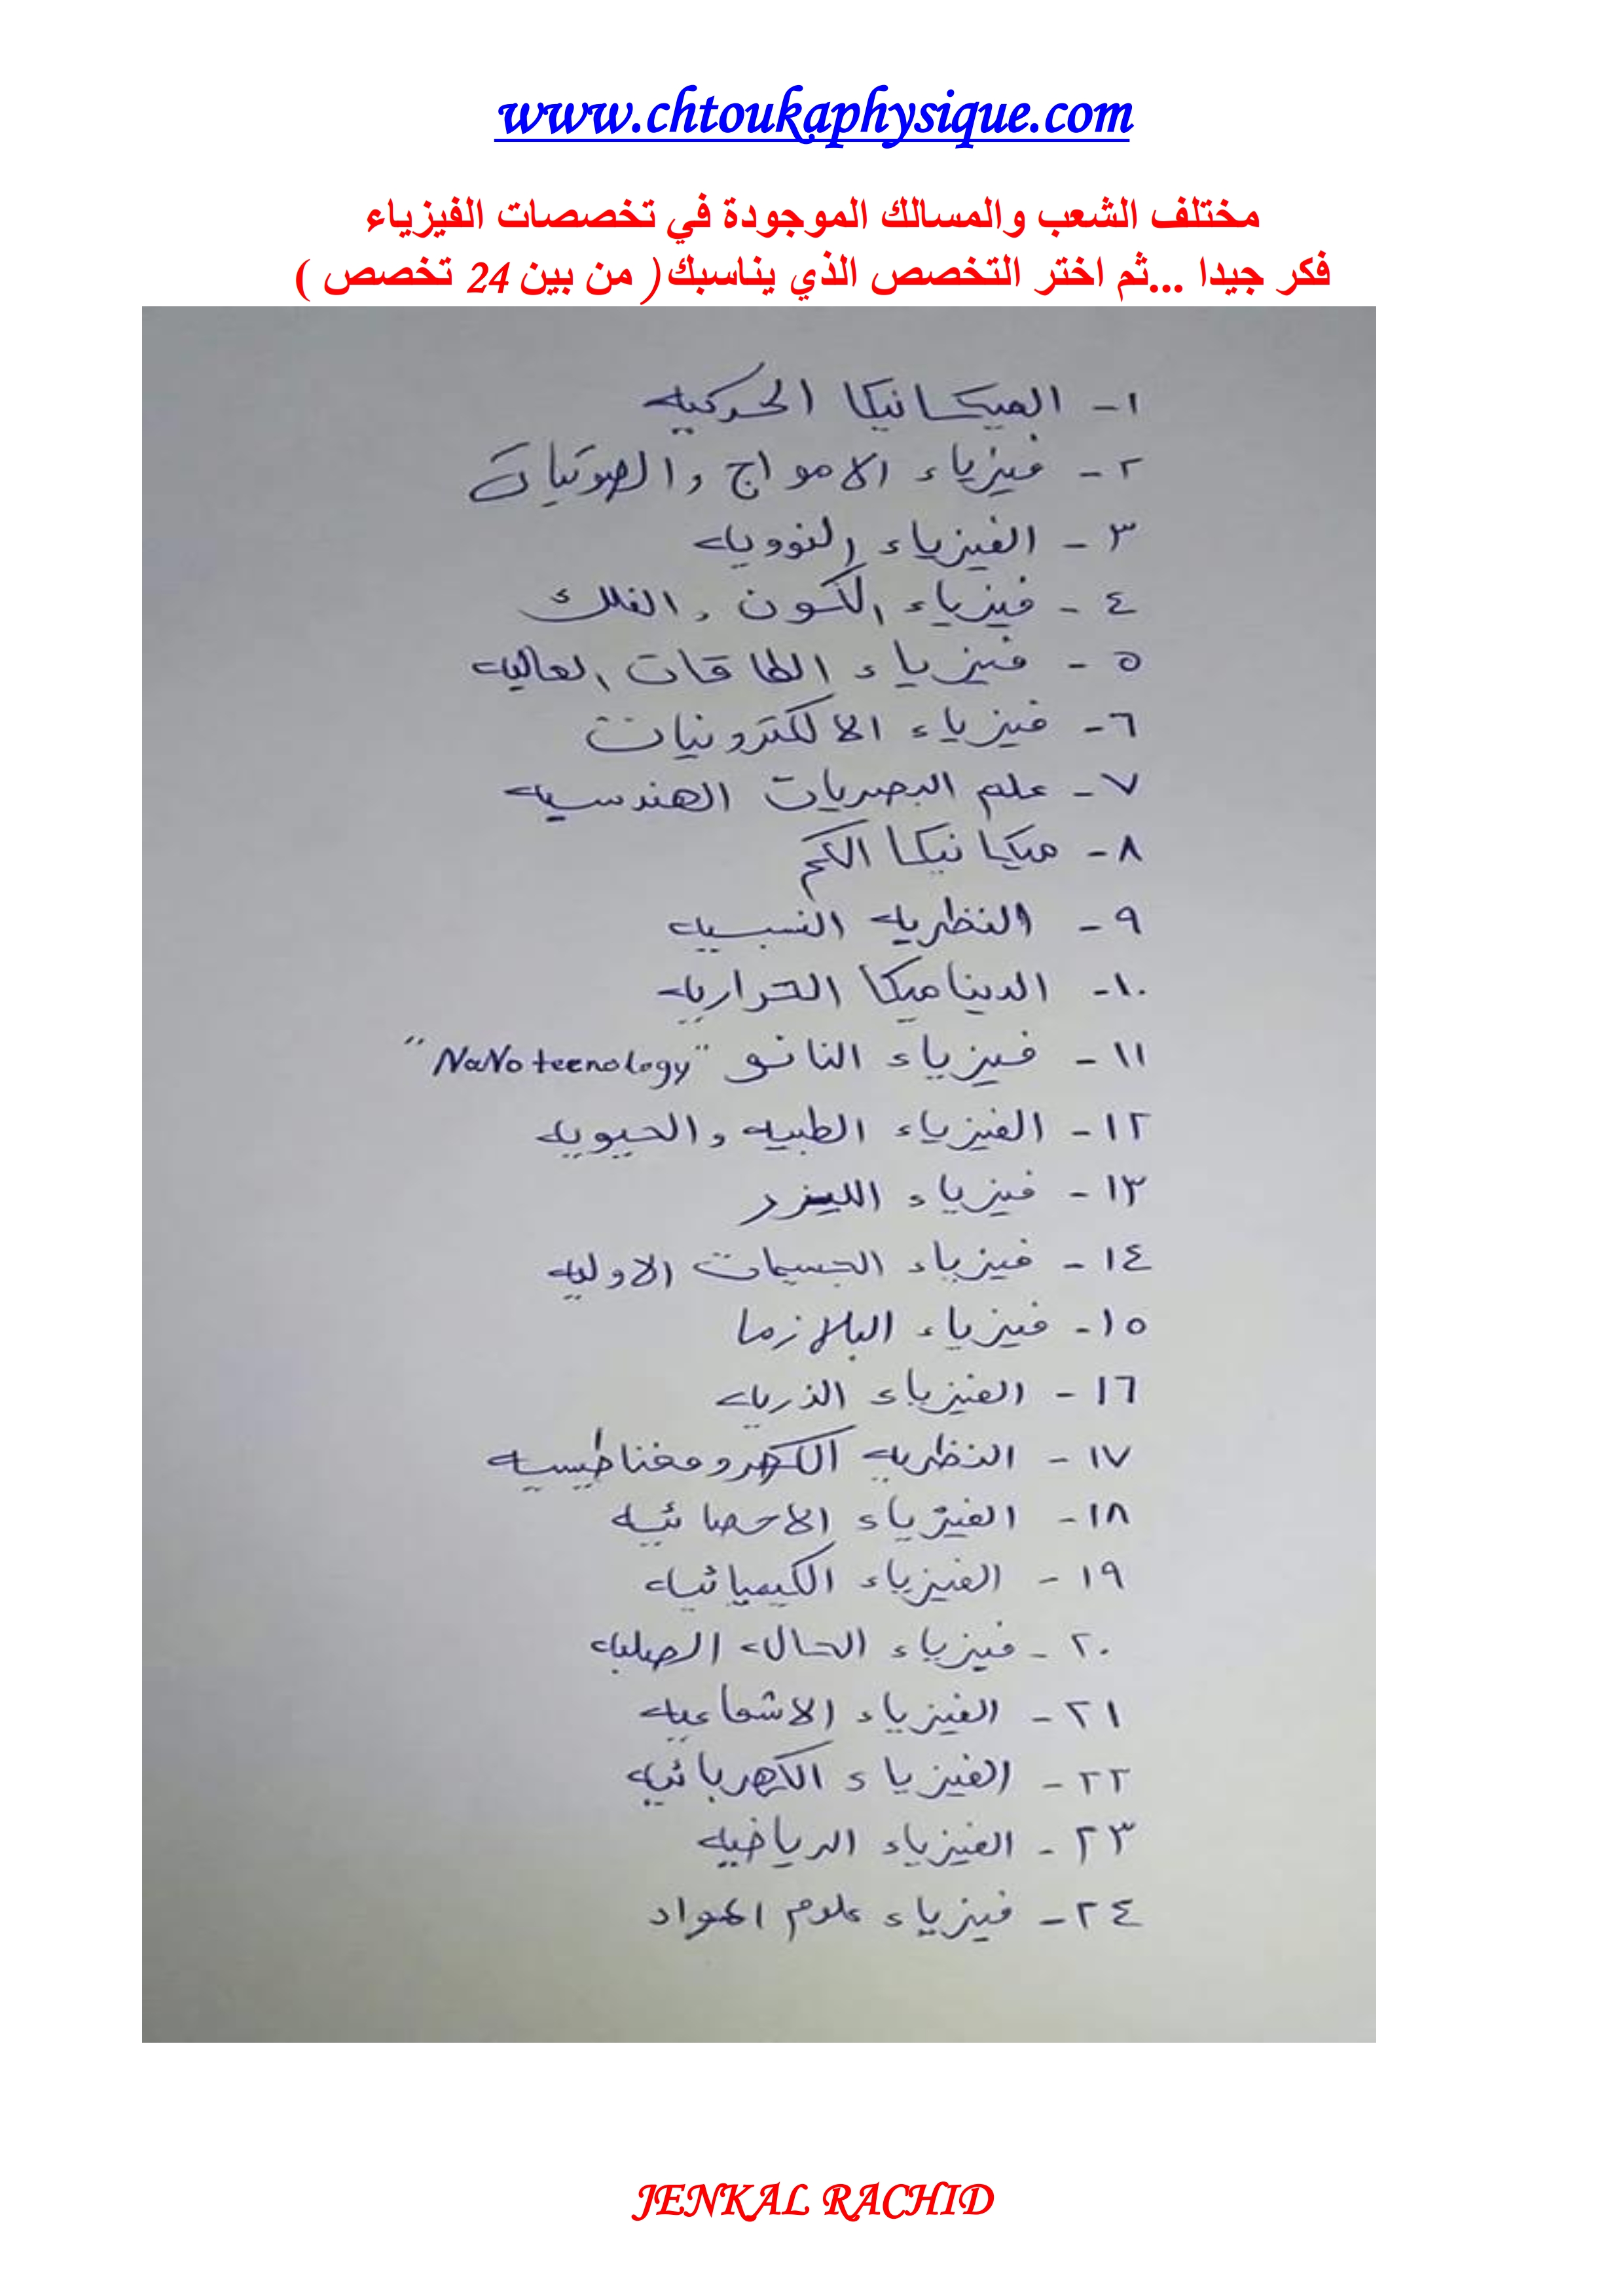 www.chtoukaphysique.com
مختلف الشعب والمسالك الموجودة في تخصصات الفيزياء
فكر جيدا ...ثم اختر التخصص الذي يناسبك( من بين 24 تخصص )
١- الميكانيكا الحركيه
٢- فيزياء الامواج والصوتيات
٣- الفيزياء النوويه
٤- فيزياء الكون والفلك
٥- فيزياء الطاقات العاليه
٦- فيزياء الالكترونيات
٧- علم البصريات الهندسيه
٨- ميكانيكا الكم
٩- النظريه النسبيه
١٠- الديناميكا الحراريه
١١- فيزياء النانو "NaNo teenology"
١٢- الفيزياء الطبيه والحيويه
١٣- فيزياء الليزر
١٤- فيزياء الجسيمات الاوليه
١٥- فيزياء البلازما
١٦- الفيزياء الذريه
١٧- النظريه الكهرومغناطيسيه
١٨- الفيزياء الاحصائيه
١٩- الفيزياء الكيميائيه
٢٠- فيزياء الحاله الصلبه
٢١- الفيزياء الاشعاعيه
٢٢- الفيزياء الكهربائيه
٢٣- الفيزياء الرياضيه
٢٤- فيزياء علوم المواد
JENKAL RACHID